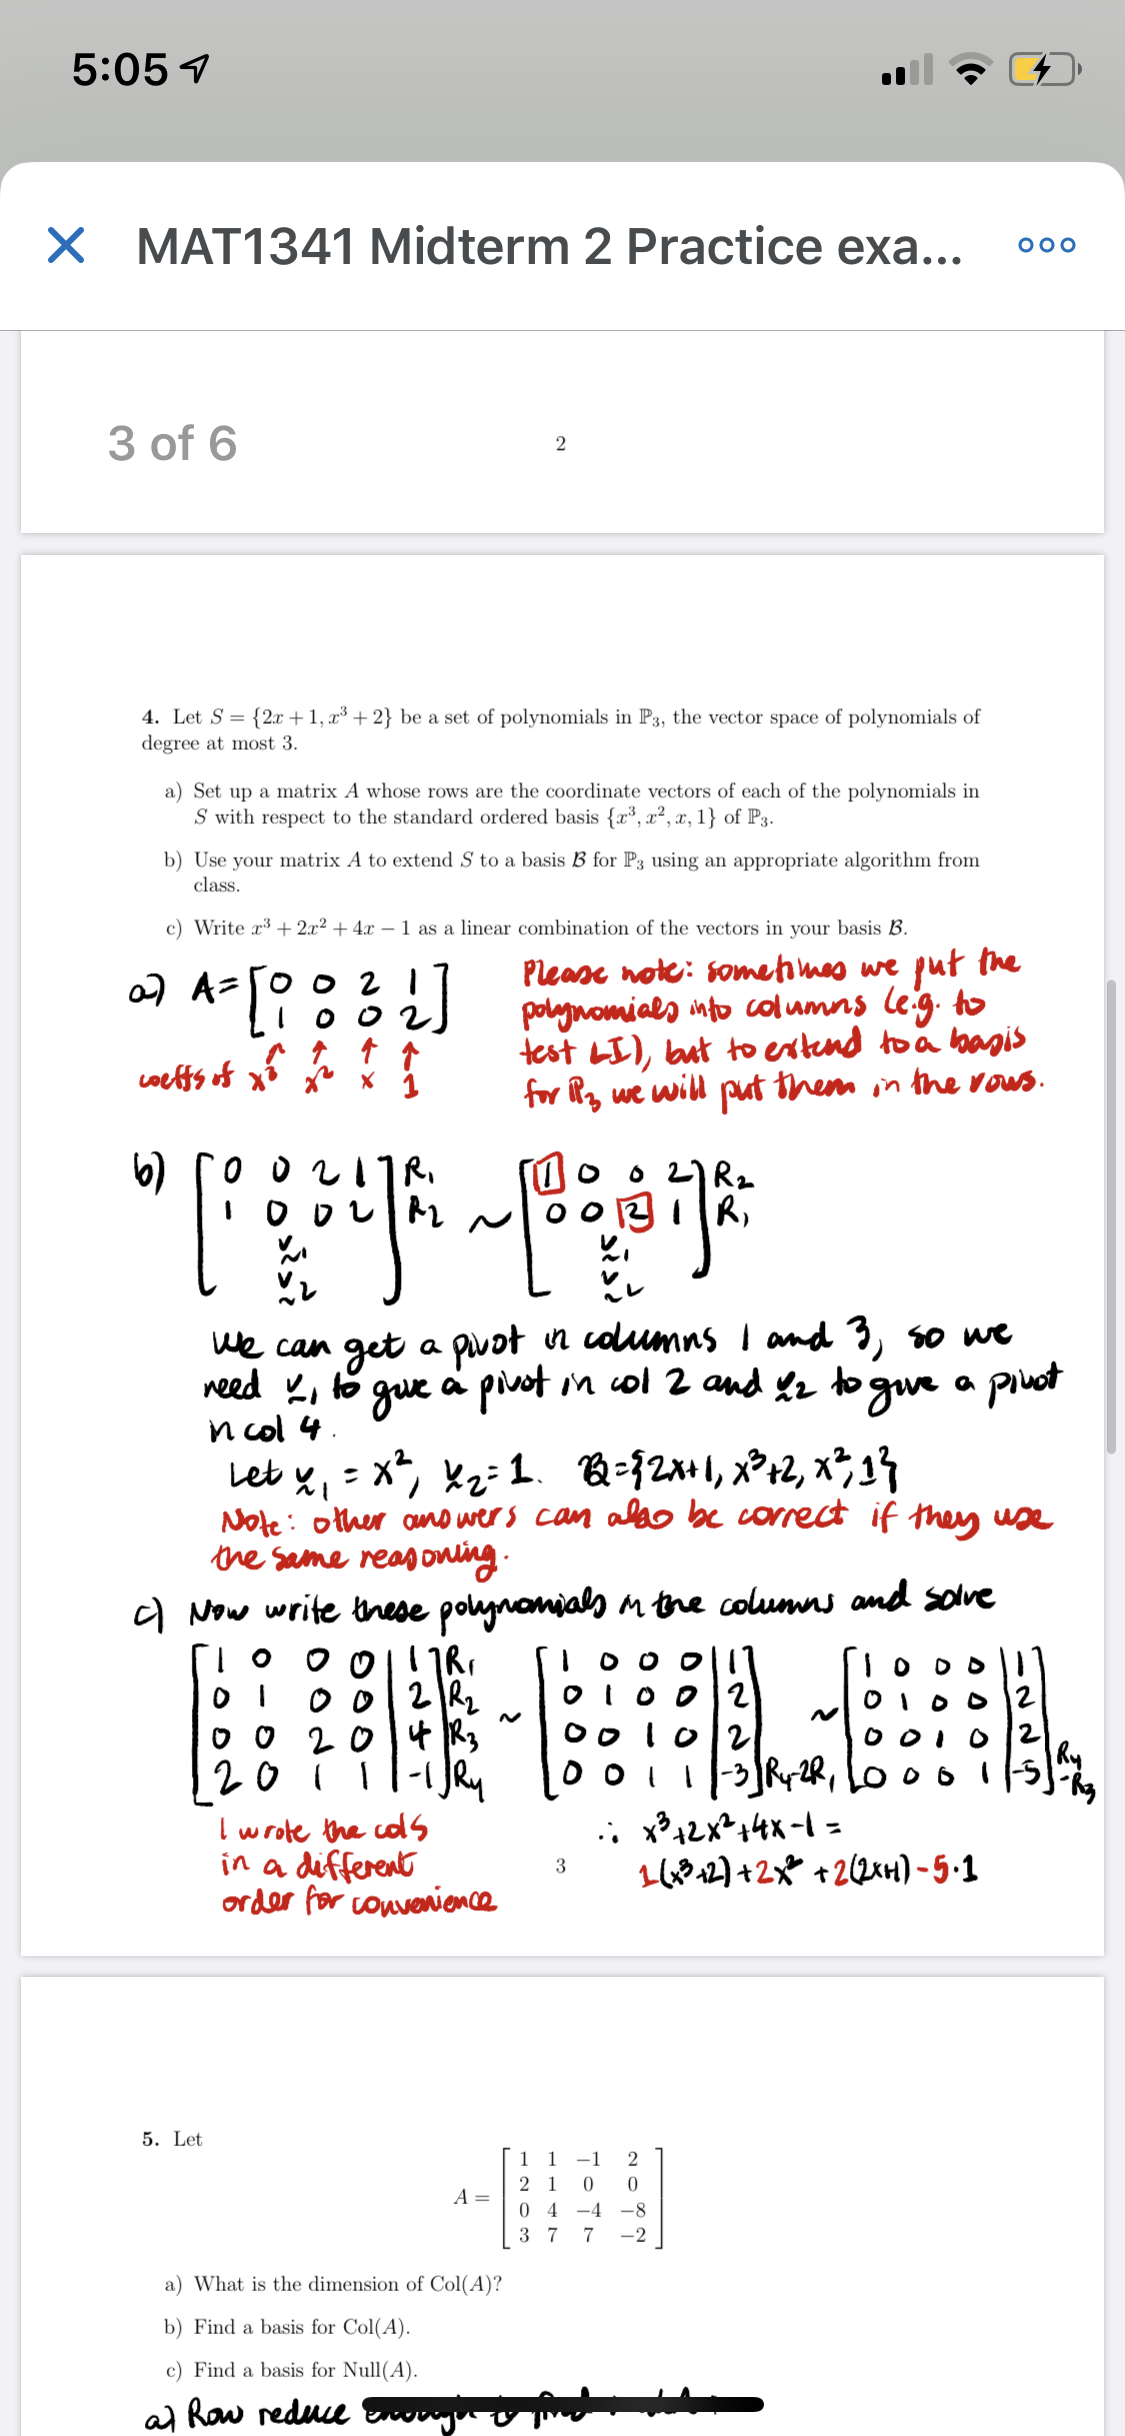 5:05
MAT1341 Midterm 2 Practice exa...
3 of 6
2
4. Let S = {2x + 1, x³ + 2} be a set of polynomials in ℙ₃, the vector space of polynomials of
degree at most 3.
a) Set up a matrix A whose rows are the coordinate vectors of each of the polynomials in
S with respect to the standard ordered basis {x³, x², x, 1} of ℙ₃.
b) Use your matrix A to extend S to a basis ℬ for ℙ₃ using an appropriate algorithm from
class.
c) Write x³ + 2x² + 4x − 1 as a linear combination of the vectors in your basis ℬ.
a) A = [0 0 2 1
1 0 0 2]
↑ ↑ ↑ ↑
coeffs of x³ x² x 1
Please note: sometimes we put the
polynomials into columns (e.g. to
test LI), but to extend to a basis
for ℙ₃ we will put them in the rows.
b) [0 0 2 1] R₁ ~ [1 0 0 2] R₂
[1 0 0 2] R₂ [0 0 2 1] R₁
v₁ v₁
v₂ v₂
We can get a pivot in columns 1 and 3, so we
need v₁ to give a pivot in col 2 and v₂ to give a pivot
in col 4.
Let v₁ = x², v₂ = 1. ℬ = {2x+1, x³+2, x², 1}
Note: other answers can also be correct if they use
the same reasoning.
c) Now write these polynomials in the columns and solve
[1 0 0 0 | 1] R₁ [1 0 0 0 | 1] [1 0 0 0 | 1]
[0 1 0 0 | 2] R₂ ~ [0 1 0 0 | 2] ~ [0 1 0 0 | 2]
[0 0 2 0 | 4] R₃ [0 0 1 0 | 2] [0 0 1 0 | 2]
[2 0 1 1 | -1] R₄ [0 0 1 1 | -3] R₄-2R₁ [0 0 0 1 | -5] R₄-R₃
I wrote the cols
in a different
order for convenience
∴ x³+2x²+4x-1 =
1(x³+2)+2x²+2(2x+1)-5·1
3
5. Let
A = [1 1 −1 2
2 1 0 0
0 4 −4 −8
3 7 7 −2]
a) What is the dimension of Col(A)?
b) Find a basis for Col(A).
c) Find a basis for Null(A).
a) Row reduce enough to find